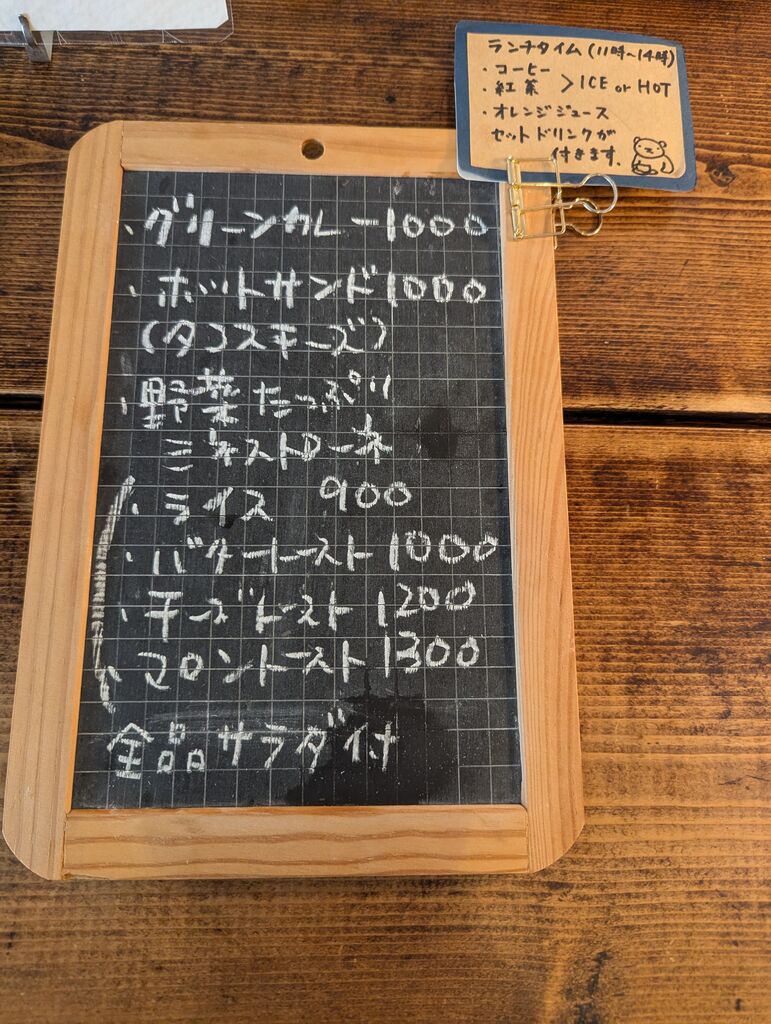 ランチタイム(11時〜14時)
・コーヒー
・紅茶 >ICE or HOT
・オレンジジュース
セットドリンクが
付きます。
・グリーンカレー1000
・ホットサンド1000
(タコスチーズ)
・野菜たっぷり
ミネストローネ
・ライス 900
・バタートースト1000
・チーズトースト1200
・マロントースト1300
全品サラダ付